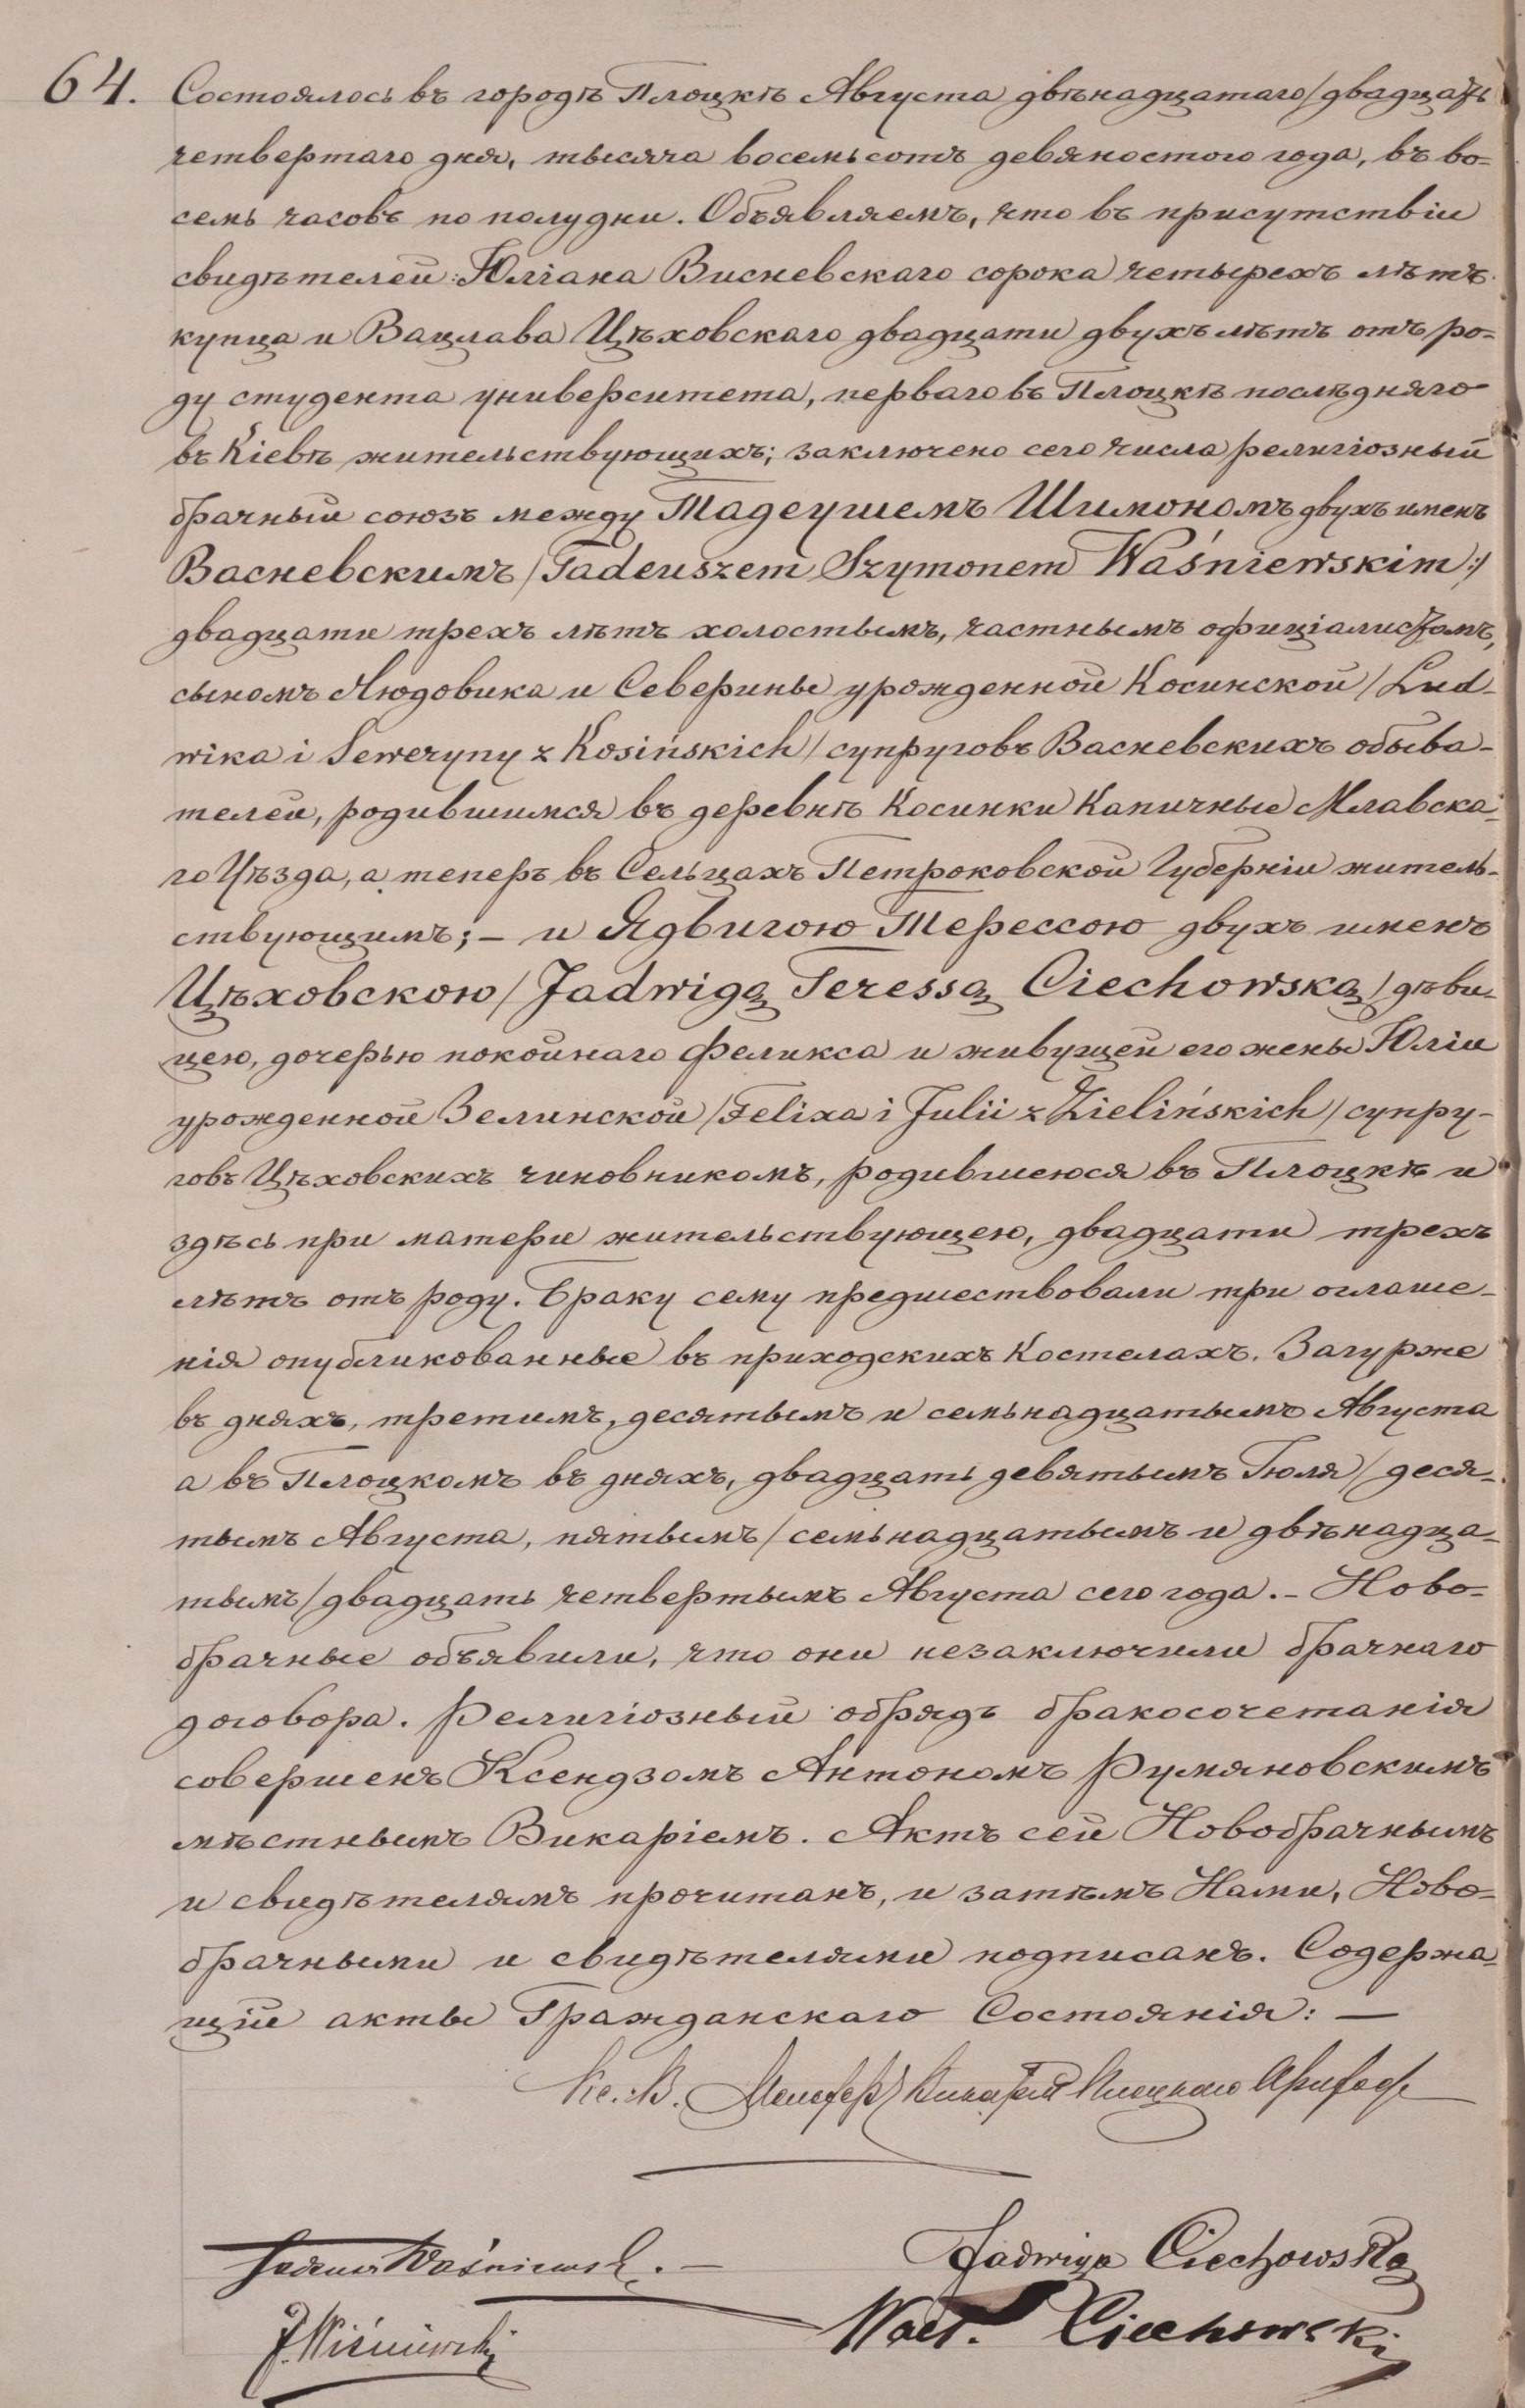 64. Состоялось въ городѣ Плоцкѣ Августа двѣнадцатаго/двадцать
четвертаго дня, тысяча восемьсотъ девяностого года, въ во-
семь часовъ по полудни. Объявляемъ, что въ присутствіи
свидѣтелей: Юліана Висневскаго сорока четырехъ лѣтъ
купца и Вацлава Цѣховскаго двадцати двухъ лѣтъ отъ ро-
ду студента университета, перваго въ Плоцкѣ послѣдняго
въ Кіевѣ жительствующихъ; заключено сего числа религіозный
брачный союзъ между Тадеушемъ Шимономъ двухъ именъ
Васневскимъ /Tadeuszem Szymonem Waśniewskim:/
двадцати трехъ лѣтъ холостымъ, частнымъ официалистомъ,
сыномъ Людовика и Северины урожденной Косинской /Lud-
wika i Seweryny z Kosińskich/ супруговъ Васневскихъ обыва-
телей, родившимся въ деревнѣ Косинки Капичные Млавска-
го Уѣзда, а теперъ въ Сельцахъ Петроковской Губерніи житель-
ствующимъ; – и Ядвигою Терессою двухъ именъ
Цѣховскою /Jadwigą Teressą Ciechowską/ дѣви-
цею, дочерью покойнаго Феликса и живущей его жены Юліи
урожденной Зелинской /Felixa i Julii z Zielińskich/ супру-
говъ Цѣховскихъ чиновникомъ, родившеюся въ Плоцкѣ и
здѣсь при матери жительствующею, двадцати трехъ
лѣтъ отъ роду. Браку сему предшествовали три оглаше-
нія опубликованные въ приходскихъ Костелахъ. Загурже
въ дняхъ, третимъ, десятымъ и семьнадцатымъ Августа
а въ Плоцкомъ въ дняхъ, двадцать девятымъ Іюля/деся-
тымъ Августа, пятымъ/семьнадцатымъ и двѣнадца-
тымъ/двадцать четвертымъ Августа сего года. – Ново-
брачные объявили, что они незаключили брачнаго
договора. Религіозный обрядъ бракосочетанія
совершенъ Ксендзомъ Антономъ Румяновскимъ
мѣстнымъ Викаріемъ. Актъ сей Новобрачнымъ
и свидѣтелямъ прочитанъ, и затѣмъ Нами, Ново-
брачными и свидѣтелями подписанъ. Содержа-
щій акты Гражданскаго Состоянія: –
Кс. В. Викарій Плоцкаго
Jadwiga Ciechowska
Tadeusz Waśniewski. –
Wacł. Ciechowski
J. Wiśniewski